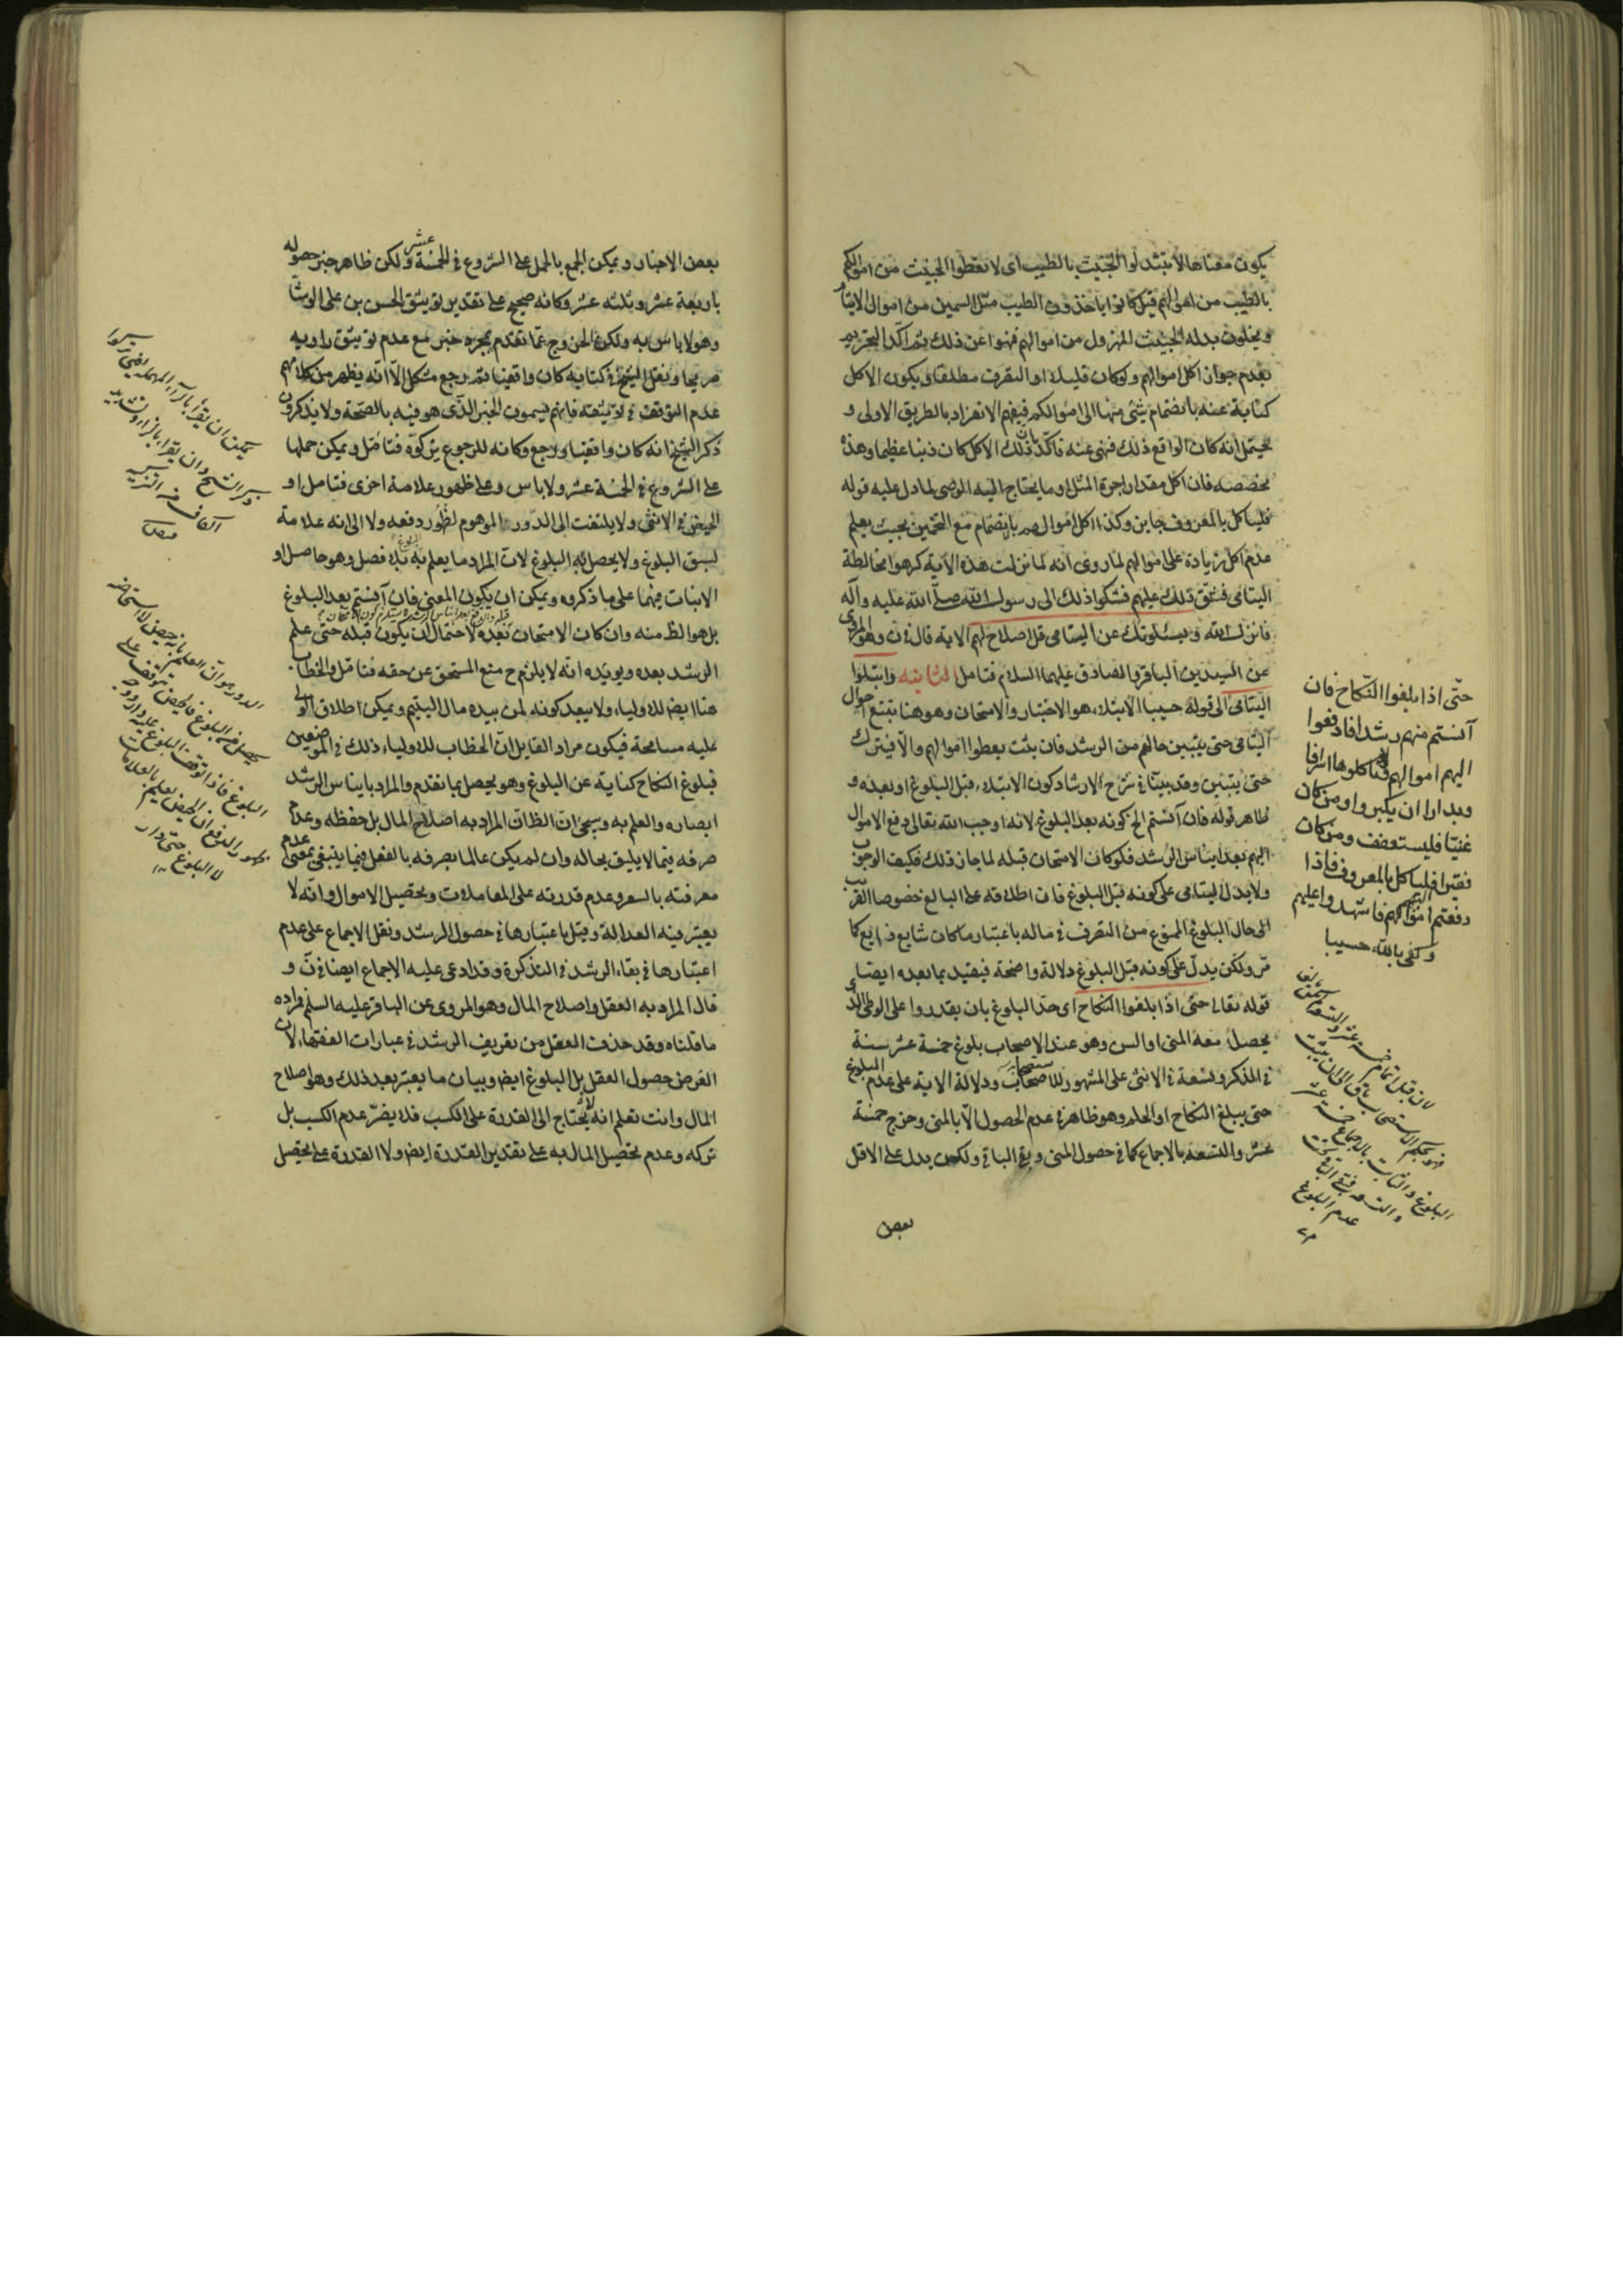 يكون معناها لا تتبدلوا الخبيث بالطيب اى لا تعطوا الخبيث من اموالكم
بالطيب من اموالهم قيل كانوا ياخذون الطيب مثل السمين من اموال الايتام
ويجعلون بدله الخبيث المهزول من اموالهم فنهوا عن ذلك ثم اكّد التحريم
بعدم جواز اكل اموالهم ولو كان قليلا او التصرف مطلقا ويكون الاكل
كناية عنه بانضمام شئ منها الى اموالكم فيفهم الانفراد بالطريق الاولى و
يحتمل انه كان الواقع ذلك فنهى عنه فاكّد بان ذلك الاكل كان ذنبا عظيما وهذه
مخصصه فان اكل مقدار اجرة المثل او ما يحتاج اليه الوصى لما دل عليه قوله
فلياكل بالمعروف جايز وكذا اكل اموالهم بانضمام مع التخمين بحيث يعلم
عدم اكل زيادة على اموالهم لما روى انه لما نزلت هذه الآية كرهوا مخالطة
اليتامى فشق ذلك عليهم فشكوا ذلك الى رسول الله صلى الله عليه وآله
فانزل الله ويسئلونك عن اليتامى قل اصلاح لهم الاية قال فى ن وهو المروى
عن السيدين الباقر والصادق عليهما السلام فتامل الثانية وابتلوا
اليتامى الى قوله حسيبا الابتلاء هو الاختبار والامتحان وهو هنا تتبع احوال
اليتامى حتى يتبين حالهم من الرشد فان ثبت يعطوا اموالهم والّا فيترك
حتى يتبين وقد بيّنا فى شرح الارشاد كون الابتلاء قبل البلوغ او بعده و
ظاهر قوله فان آنستم الخ كونه بعد البلوغ لانه اوجب الله تعالى دفع الاموال
اليهم بعد ايناس الرشد فلو كان الامتحان قبله لما جاز ذلك فكيف الوجوب
ولا يدل ليتامى على كونه قبل البلوغ فان اطلاقه على البالغ خصوصا القريب
الى حال البلوغ الممنوع من التصرف فى ماله باعتبار ما كان شايع ذايع كما
مرّ ولكن يدلّ على كونه قبل البلوغ دلالة واضحة فيقيد بما بعده ايضا
قوله تعالى حتى اذا بلغوا النكاح اى حدّ البلوغ بان يقدروا على الوطى الذى
يحصل معه المنى او السن وهو عند الاصحاب بلوغ خمسة عشر سنة
فى المذكر وتسعة فى الانثى على المشهور للاستصحاب ودلالة الاية على عدم البلوغ
حتى يبلغ النكاح او الحلم وهو ظاهر فى عدم الحصول الّا بالمنى وخرج خمسة
عشر والتسعة بالاجماع كما فى حصول المنى وبقى الباقى ولكن يدل على الاقل
بعض
حتّى اذا بلغوا النّكاح فان
آنستم منهم رشدا فادفعوا
اليهم اموالهم ولا تاكلوها اسرافا
وبدارا ان يكبروا ومن كان
غنيّا فليستعفف ومن كان
فقيرا فلياكل بالمعروف فاذا
دفعتم اليهم اموالهم فاشهدوا عليهم
وكفى بالله حسيبا
البلوغ والثابت بالاجماع خمسة عشر
عدم البلوغ
بعض الاخبار ويمكن الجمع بالحمل على الشروع فى الخمسة عشر ولكن ظاهر خبر حصوله
باربعة عشر وثلثه عشر وكانه صحيح على تقدير توثيق الحسن بن على الوشا
وهو لا باس به ولكن الخروج عمّا تقدم بمجرد خبر مع عدم توثيق راويه
صريحا ونقل الشيخ فى كتابه كان واقفيا ثم رجع مشكل الّا انّه يظهر من كلامهم
عدم التوقف فى توثيقه فانهم يسمون الخبر الّذى هو فيه بالصّحة ولا يذكرون
ذكر الشيخ انه كان واقفيا ورجع وكانه للرجوع تركوه فتامّل ويمكن حملها
على الشروع فى الخمسة عشر ولا باس وعلى ظهور علامة اخرى فتامل او
الحيض فى الانثى ولا يلتفت الى الدّور الموهوم لظهور دفعه ولا الى انه علامة
لسبق البلوغ ولا يحصل به البلوغ لان المراد ما يعلم به البلوغ بلا فصل وهو حاصل او
الانبات فيهما على ما ذكروه ويمكن ان يكون المعنى فان آنستم بعد البلوغ
بل هو الظ منه وان كان الامتحان بعده لاحتمال ان يكون قبله حتى علم
الرشد بعده ويويّده انّه لا يلزم ح منع المستحق عن حقه فتامّل والخطاب
هنا ايض للاولياء ولا يبعد كونه لمن بيده مال اليتيم ويمكن اطلاق الولى
عليه مسامحة فيكون مراد القايل انّ الخطاب للاولياء ذلك فى الموضعين
فبلوغ النكاح كناية عن البلوغ وهو يحصل بما تقدم والمراد بايناس الرشد
ابصاره والعلم به وسيجئ انّ الظان المراد به اصلاح المال بل حفظه وعدم
صرفه فيما لا يليق بحاله وان لم يكن عالما بصرفه بالفعل فيما ينبغى بمعنى عدم
معرفته بالسعر وعدم قدرته على المعاملات وتحصيل الاموال وانّه لا
يعتبر فيه العدالة وقيل باعتبارها فى حصول الرشد ونقل الاجماع على عدم
اعتبارها فى بقاء الرشد فى التذكرة وقد ادعى عليه الاجماع ايضا فى ن و
قال المراد به العقل واصلاح المال وهو المروى عن الباقر عليه السلم مراده
ما قلناه وقد حذفت العقل من تعريف الرشد فى عبارات الفقهاء لان
الغرض حصول العقل بل البلوغ ايض وبيان ما يعتبر بعد ذلك وهو اصلاح
المال وانت تعلم انه لا يحتاج الى القدرة على الكسب فلا يضرّ عدم الكسب بل
تركه وعدم تحصيل المال به على تقدير القدرة ايض ولا القدرة على تحصيل